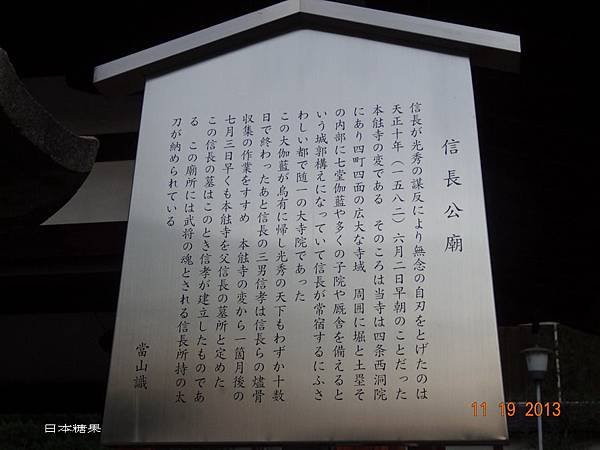 信長公廟
信長が光秀の謀反により無念の自刃をとげたのは
天正十年（一五八二）六月二日早朝のことだった
本能寺の変である　そのころは当寺は四条西洞院
にあり四町四面の広大な寺域　周囲に堀と土塁そ
の内部に七堂伽藍や多くの子院や厩舎を備えると
いう城郭構えになっていて信長が常宿するにふさ
わしい都で随一の大寺院であった
この大伽藍が烏有に帰し光秀の天下もわずか十数
日で終わったあと信長の三男信孝は信長らの燼骨
収集の作業をすすめ　本能寺の変から一箇月後の
七月三日早くも本能寺を父信長の墓所と定めた
この信長の墓はこのとき信孝が建立したものであ
る　この廟所には武将の魂とされる信長所持の太
刀が納められている
當山識
日本糖果
11 19 2013